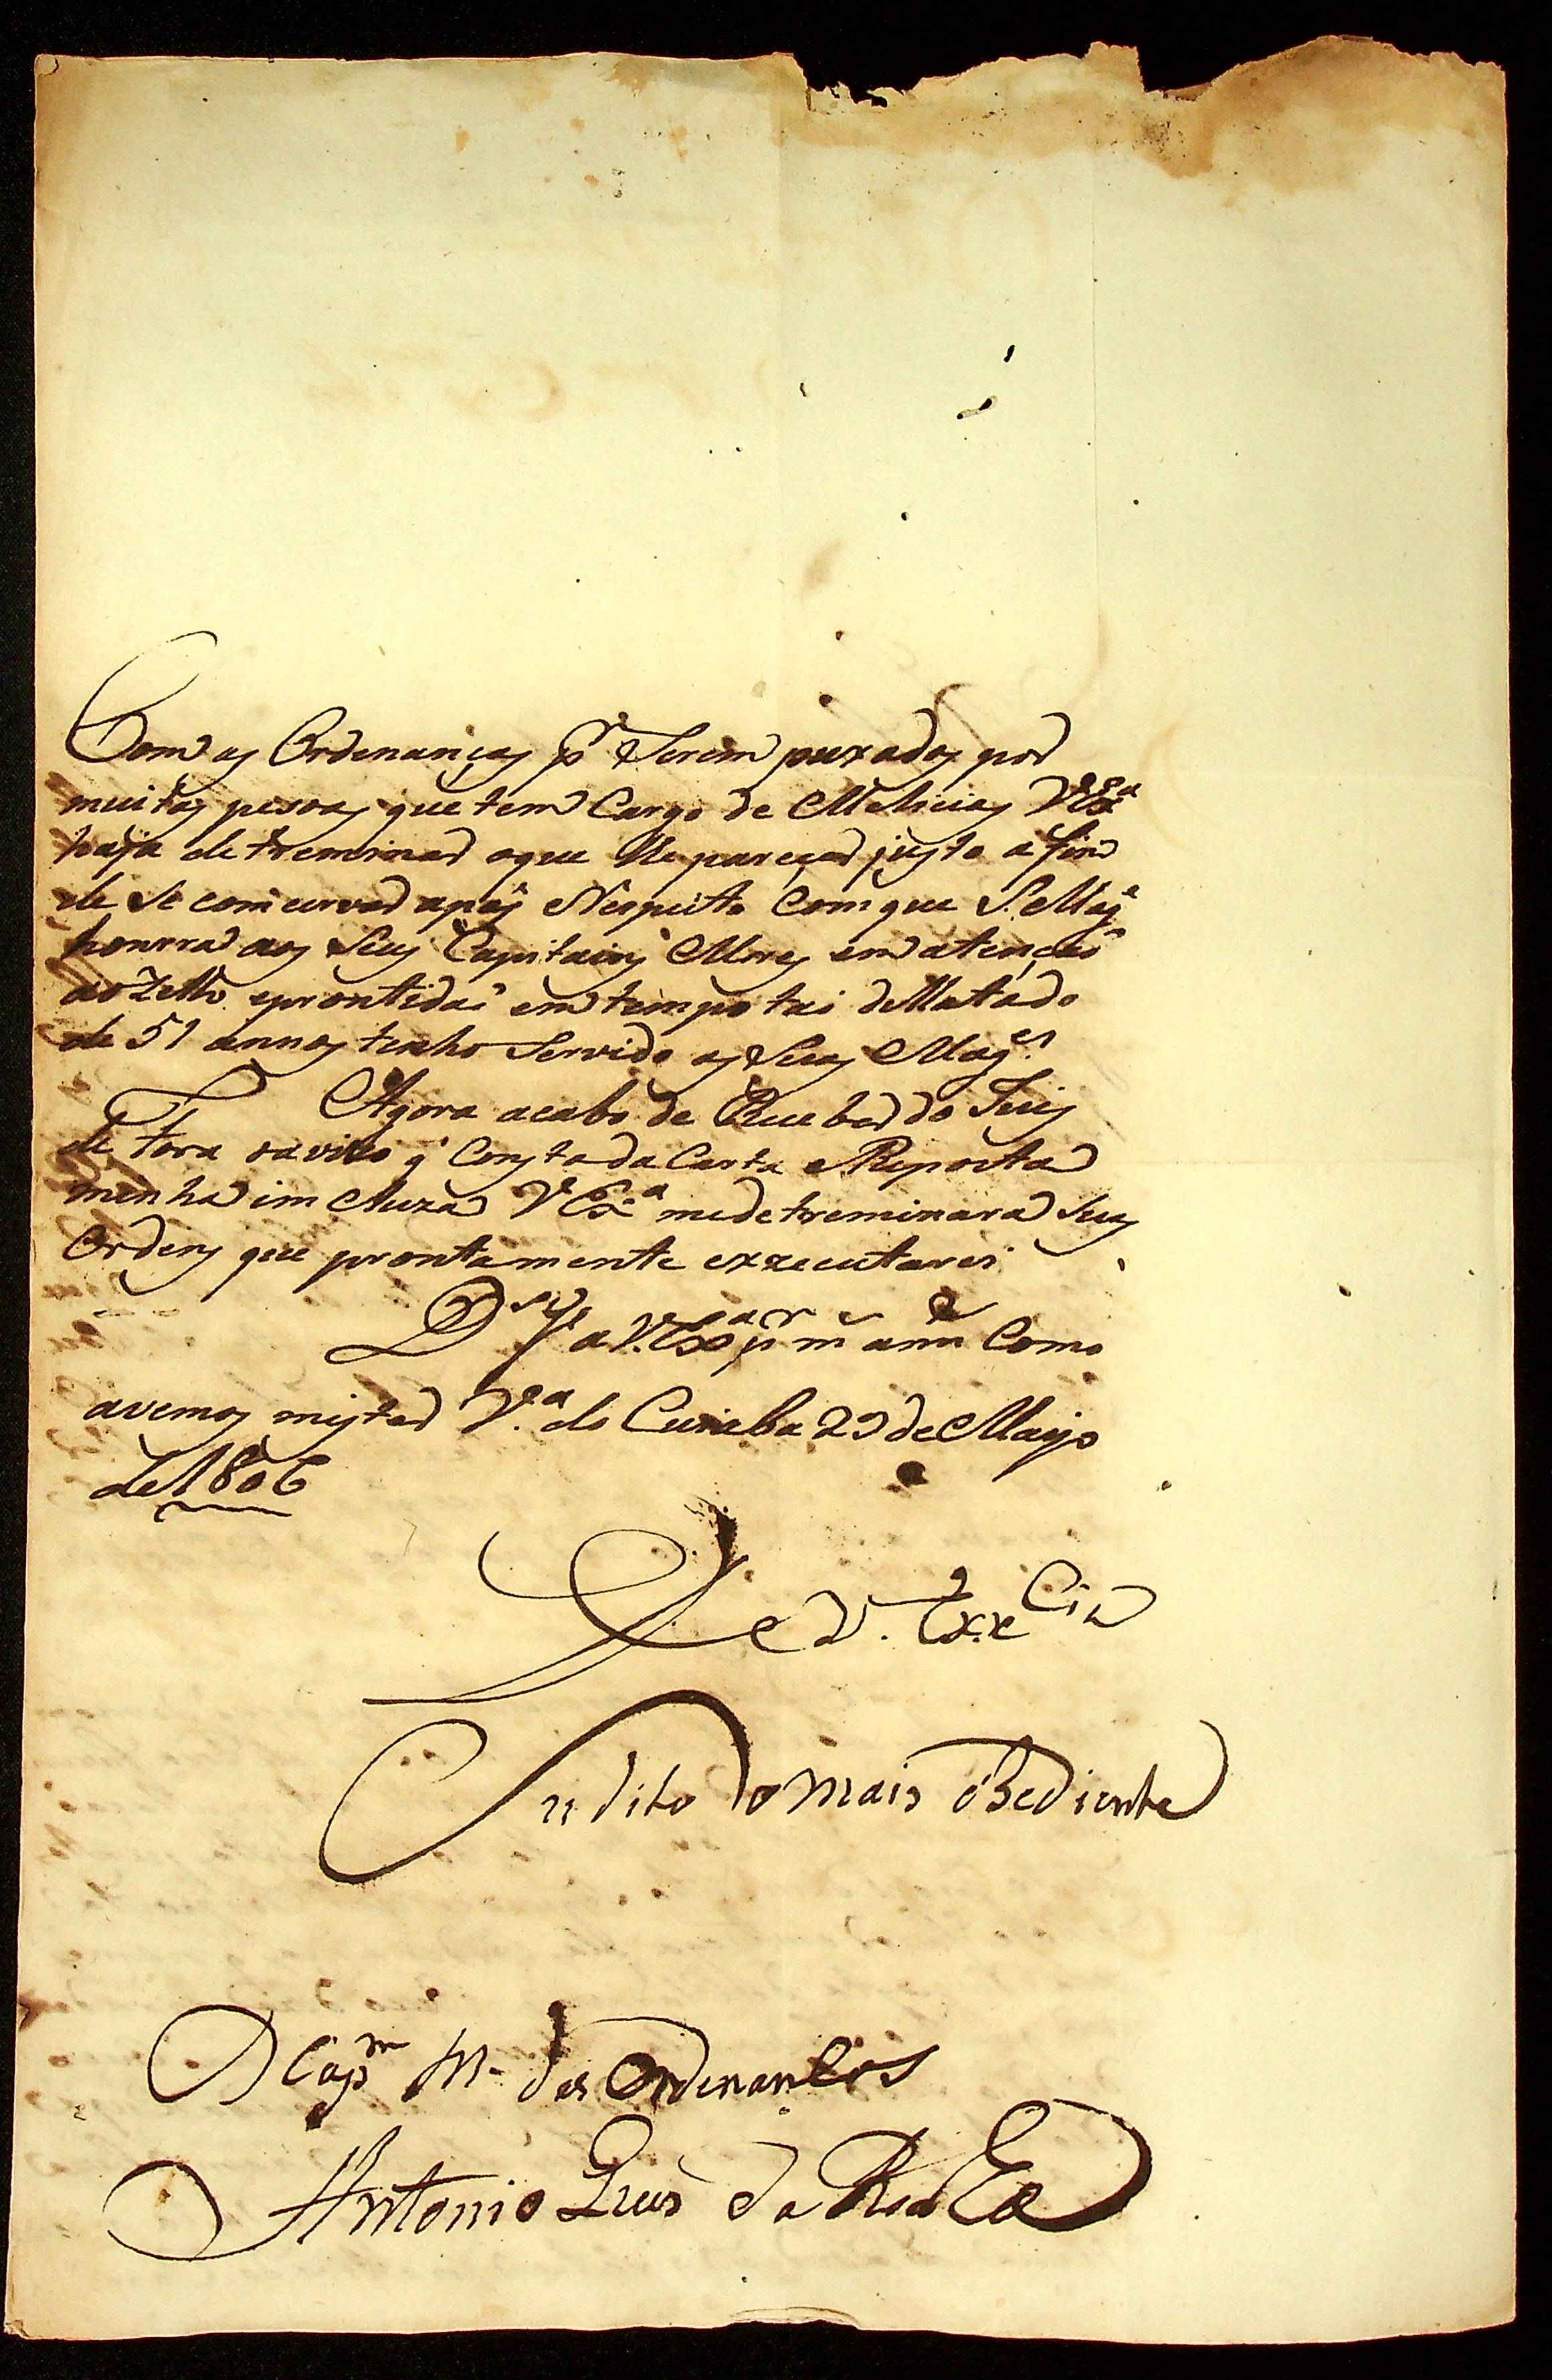 Com as Ordenanças p.ª Serem puxados por
muitas pesoas que tem Cargo de Melicias V Ex.ª
haja detreminar oque lhe pareçer justo a fim
de se comcervar apás Respeito Com que S. Mag.e
honrra aos Seus Capitains Mores em atenção
ao Zello eprontidaõ em tempo tai dellatado
de 51 annos tenho Servido as Suas Mag.es
Agora acabo de Recebar do Juis
de Fora oaviso q' Consta da Carta e Reposta
menha imcluza V Ex.ª medetreminara Suas
Ordens que prontamente exzecutarei
D.s g.e a V. Ex.ª p.r m. ann. Como
avemos mister V.ª do Cuiaba 29 de Mayo
de 1806
De V. Exx.Cia
Sudito do mais obediente
Cap.m M. das Ordenancas
Antonio Luis da Rocha